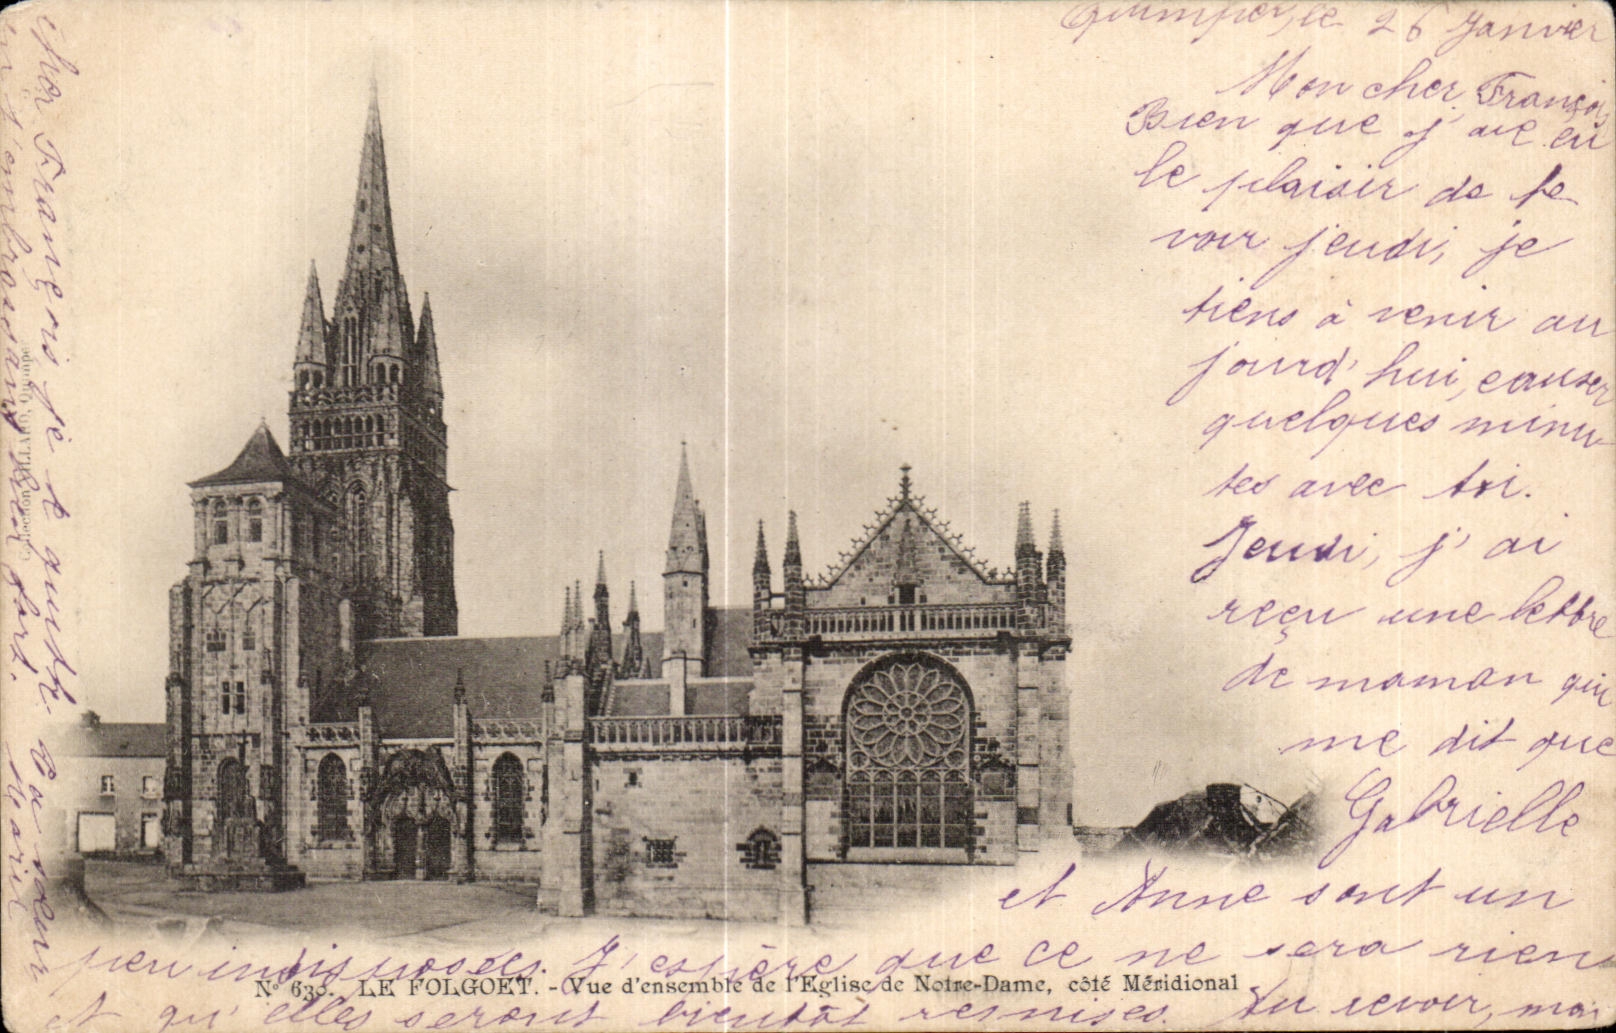 Quimper, le 26 Janvier
Mon cher François
Bien que j'aie eu
le plaisir de te
voir jeudi, je
tiens à venir au
jourd'hui, causer
quelques minu-
tes avec toi.
Jeudi, j'ai
reçu une lettre
de maman qui
me dit que
Gabrielle
et Anne sont un
peu indisposées. J'espère que ce ne sera rien
et qu'elles seront bientôt remises. Au revoir, mon
cher François je te quitte
en t'embrassant bien fort.
Ta sœur
Marie
No 630. LE FOLGOET. - Vue d'ensemble de l'Eglise de Notre-Dame, côté Méridional
Collection VILLARD, Quimper